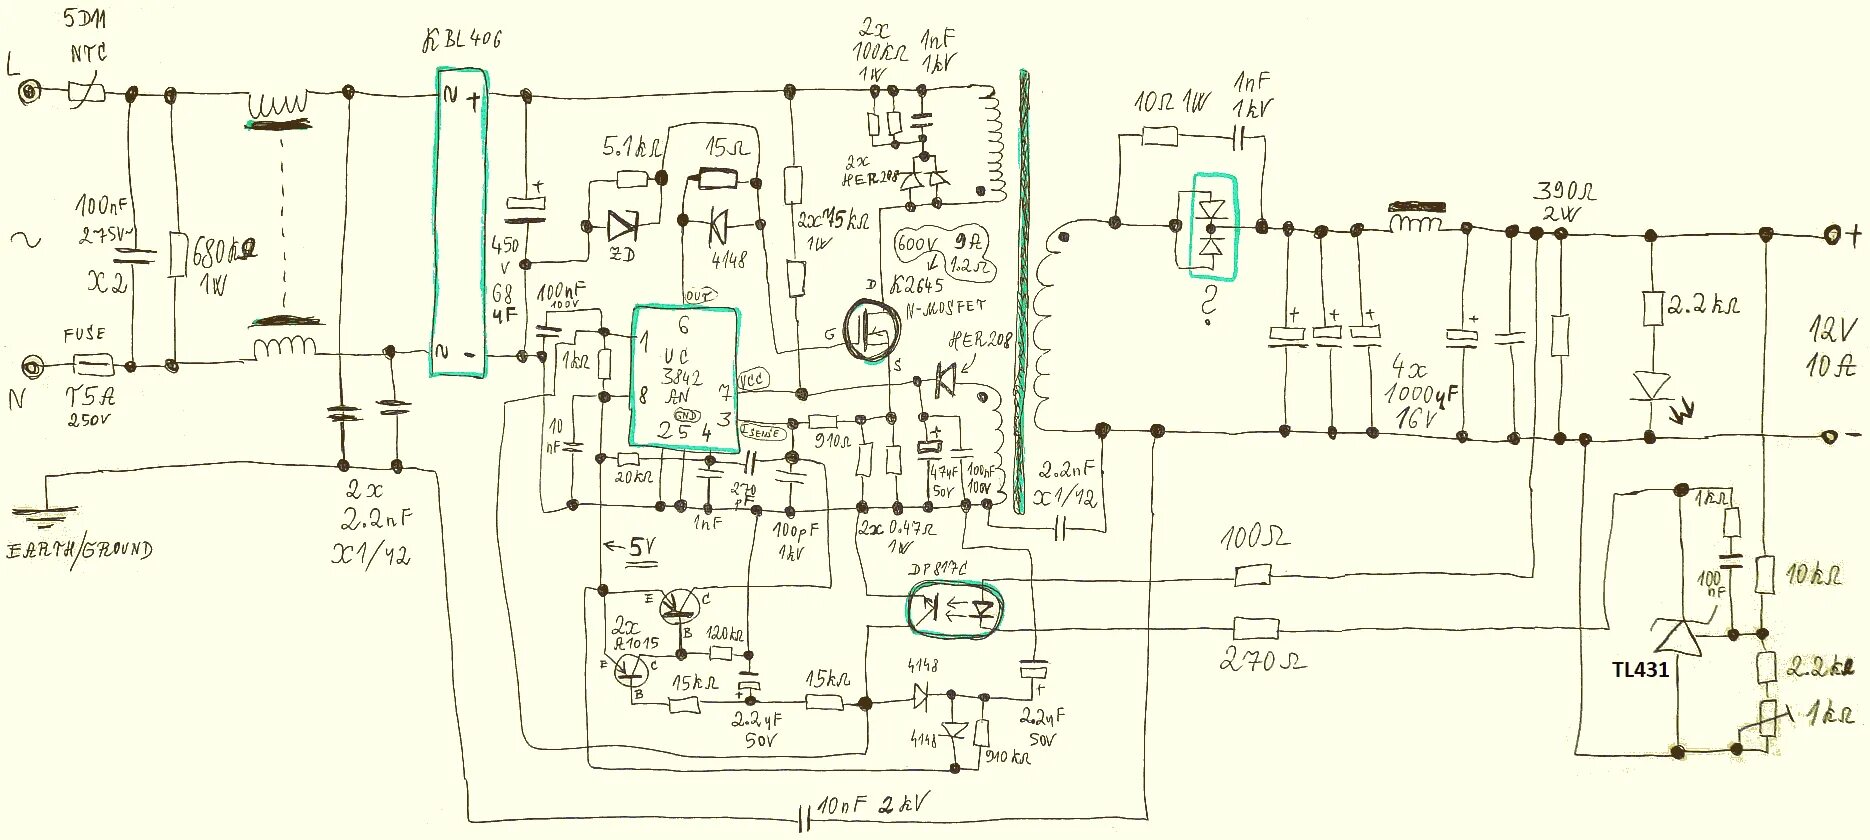 5D11
NTC
L
100nF
275V~
X2
680kΩ
1W
~
FUSE
N
T5A
250V
EARTH/GROUND
2x
2.2nF
X1/Y2
KBL406
~ +
~ -
+
450
V
68
µF
5.1kΩ
ZD
15Ω
4148
100nF
100V
1kΩ
10
nF
OUT
6
1
UC
3842
AN
8
VCC
7
GND
3
2 5 4
ISENSE
20kΩ
1nF
270
pF
100pF
1kV
5V
2x
100kΩ
1W
1nF
1kV
2x
HER208
2x 75kΩ
1W
600V 9A
1.2Ω
D
K2645
N-MOSFET
G
S
HER208
910Ω
+
47µF
50V
100nF
100V
2x 0.47Ω
1W
2.2nF
X1/Y2
DP817C
E
C
B
2x
A1015
E
C
B
120kΩ
15kΩ
+
2.2µF
50V
15kΩ
4148
4148
910kΩ
+
2.2µF
50V
10nF 2kV
10Ω 1W
1nF
1kV
?
+
+
+
+
4x
1000µF
16V
390Ω
2W
2.2kΩ
+
12V
10A
-
100Ω
270Ω
1kΩ
100
nF
10kΩ
TL431
2.2kΩ
1kΩ